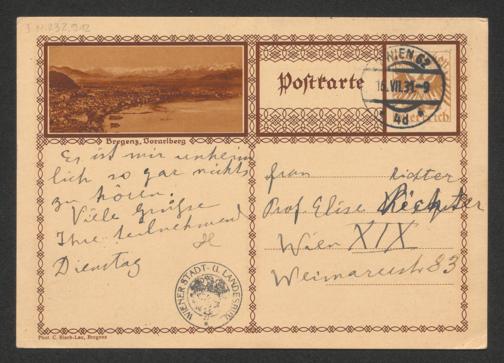 I.N. 232.912
Bregenz, Vorarlberg
Postkarte
WIEN 62
16.VII.31-9
4d
Es ist mir unheim
lich so gar nichts
zu hören.
Viele Grüsse
Ihre teilnehmend
Dienstag
Frau Richter
Prof. Elise Richter
Wien XIX
Weimarerstr 83
WIENER STADT- U. LANDESBIBL.
Phot. C. Risch-Lau, Bregenz